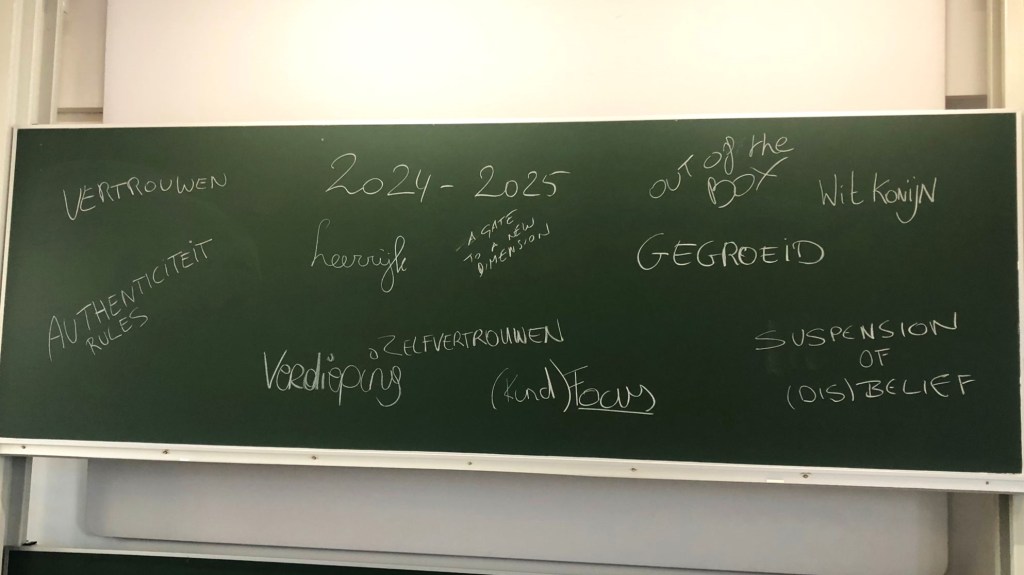 VERTROUWEN
2024 - 2025
OUT Of the
BOX
Wit Konijn
Leerrijk
A GATE
TO A NEW
DIMENSION
GEGROEID
AUTHENTICITEIT
RULES
ZELFVERTROUWEN
Verdieping
(Kund)Focus
SUSPENSION
OF
(DIS)BELIEF